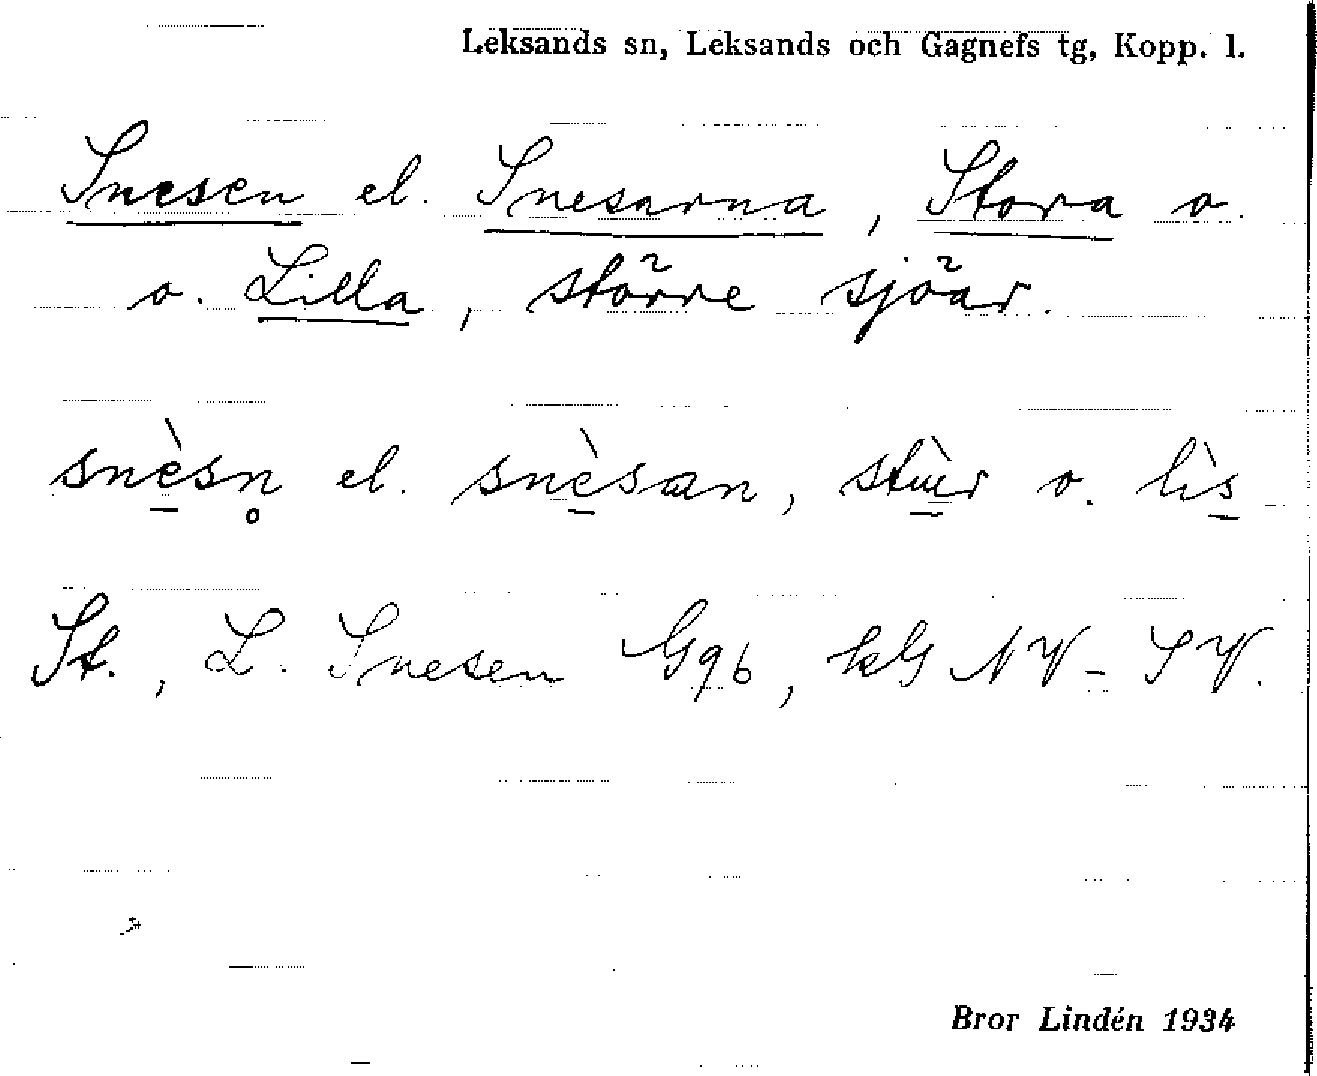 Leksands sn, Leksands och Gagnefs tg, Kopp. l.
Snesen el. Snesarna, Stora o.
o. Lilla, större sjöar.
snè̱sn̥ el. snè̱san, stù̱r o. lìs̱
St., L. Snesen G96, kG NV-SV.
Bror Lindén 1934